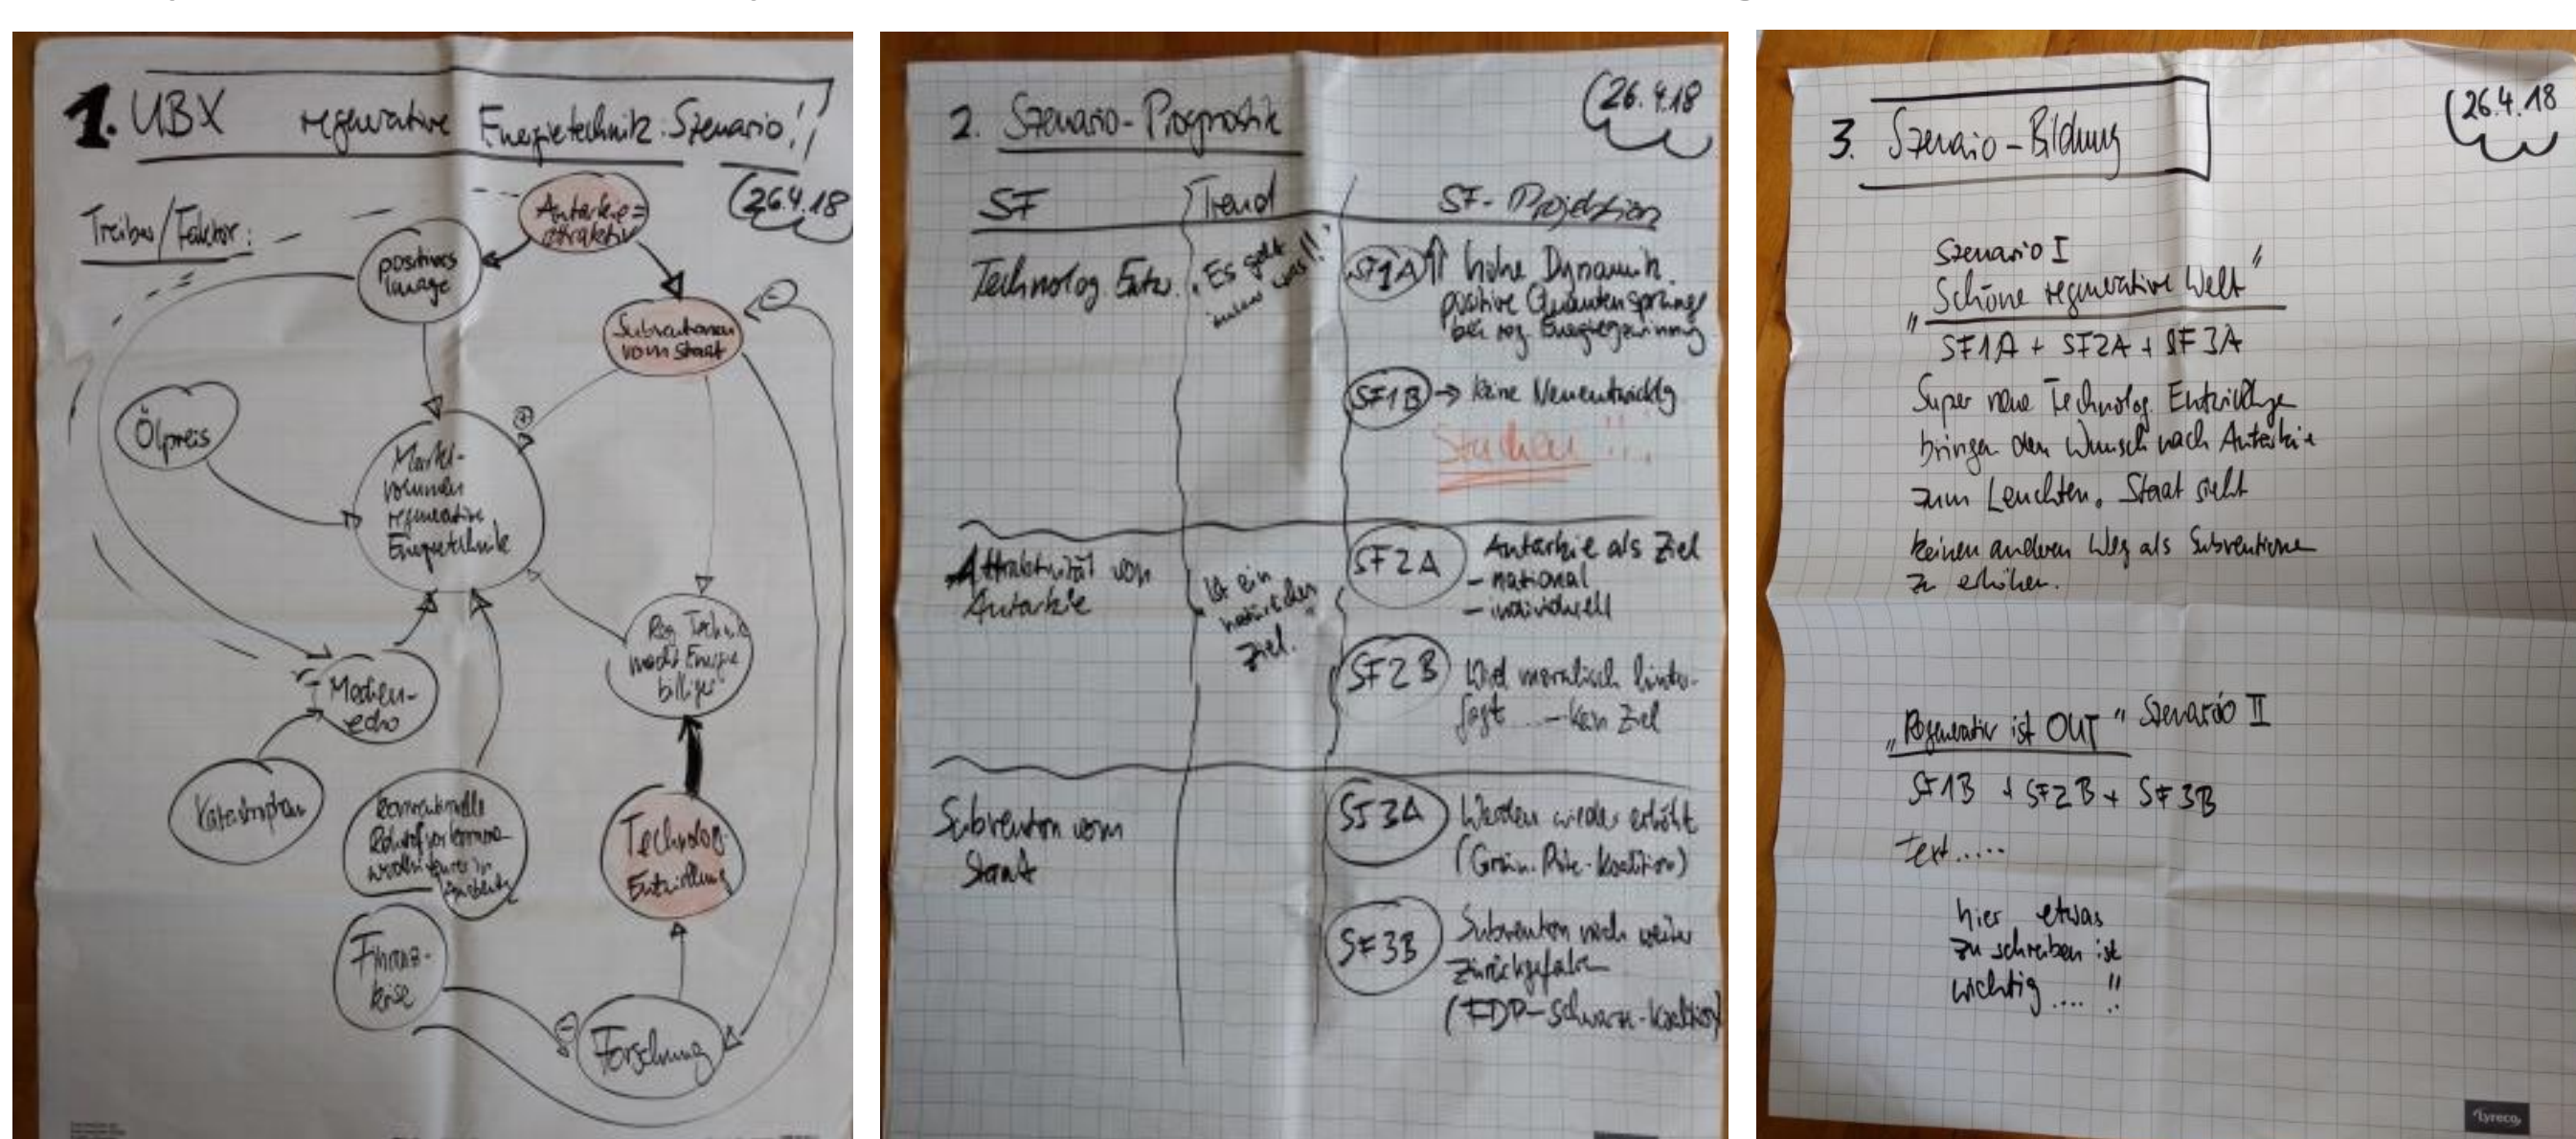 1. UBX regenerative Energietechnik-Szenario!
(26.4.18
Treiber/Faktor:
Antarkie =
attraktiv
positives
Image
Subventionen
vom Staat
Ölpreis
Markt-
volumen
regenerative
Energietechnik
Medien-
echo
Reg. Technik
macht Energie
billiger
Katastrophen
konventionelle
Technolog.
Entwicklung
Finanz-
krise
Forschung
2. Szenario-Prognostik
(26.4.18
SF
Trend
SF-Projektion
Technolog. Entw.
"Es geht
immer was!!"
SF1A
hohe Dynamik
positive Quantensprünge
bei reg. Energiegewinnung
SF1B → keine Neuentwicklg
Attraktivität von
Autarkie
Ist ein
natürliches
Ziel."
SF2A
Autarkie als Ziel
- national
- individuell
SF2B
Wird moralisch hinter-
fragt ... - kein Ziel
Subvention vom
Staat
SF3A
Werden wieder erhöht
(Grün-Rote-Koalition)
SF3B
Subvention noch weiter
zurückgefahren
(FDP-Schwarz-Koalition)
3. Szenaio-Bildung
(26.4.18
Szenario I
"Schöne regenerative Welt"
SF1A + SF2A + SF3A
Super neue Technolog. Entwicklunge
bringen den Wunsch nach Autarkie
zum Leuchten. Staat sieht
keinen anderen Weg als Subventione
zu erhöhen.
"Regenerativ ist OUT" Szenario II
SF1B + SF2B + SF3B
Text.....
hier etwas
zu schreiben ist
wichtig .... !!
Lyreco